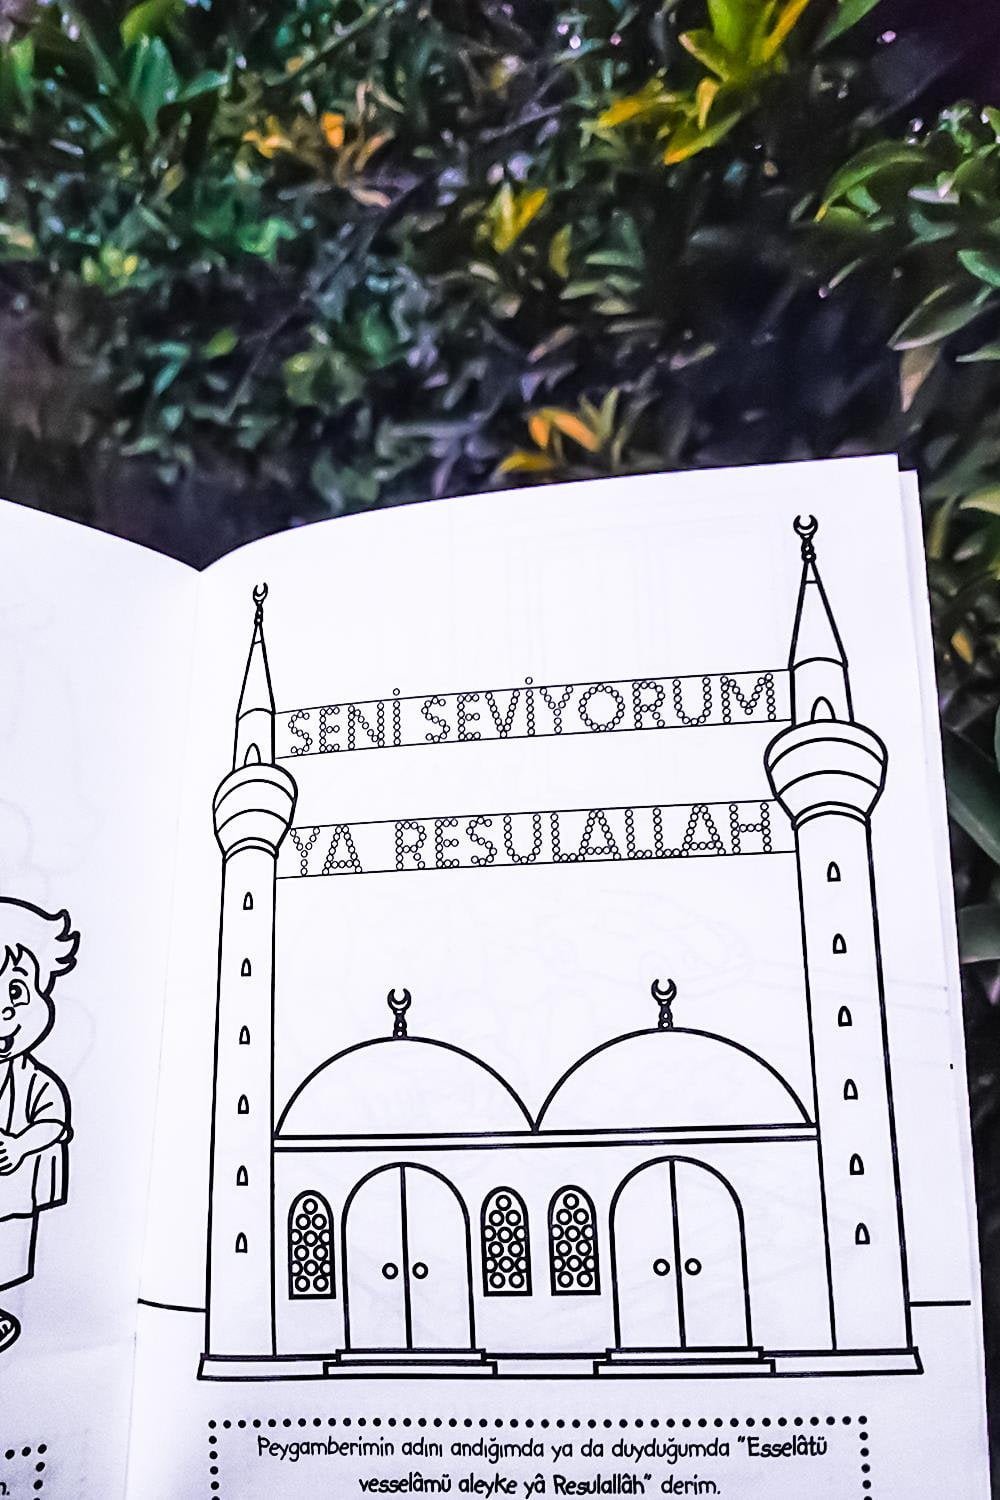 SENİ SEVİYORUM
YA RESULALLAH
Peygamberimin adını andığımda ya da duyduğumda "Esselâtü
vesselâmü aleyke yâ Resulallâh" derim.